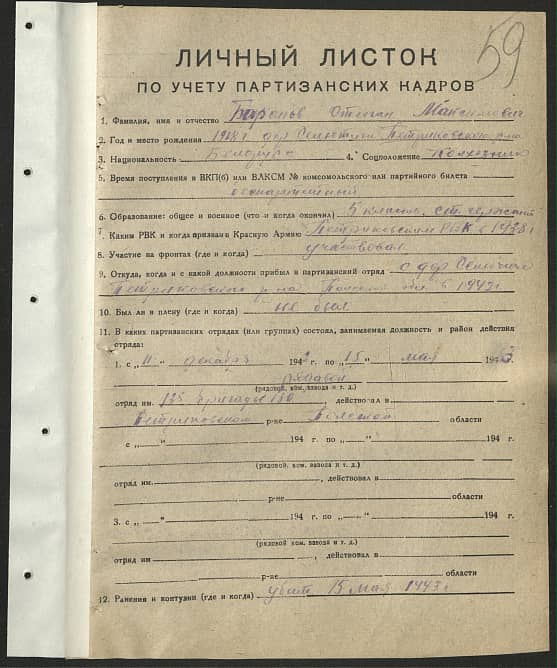 59
ЛИЧНЫЙ ЛИСТОК
ПО УЧЕТУ ПАРТИЗАНСКИХ КАДРОВ
1. Фамилия, имя и отчество Степан Максимович
2. Год и место рождения 1918 г. дер Петриковского р-на
3. Национальность Белорус 4. Соцположение колхозник
5. Время поступления в ВКП(б) или ВЛКСМ № комсомольского или партийного билета
беспартийный
6. Образование: общее и военное (что и когда окончил) 5 классов, ст. сержант
7. Каким РВК и когда призван в Красную Армию Петриковским РВК в 1938 г
8. Участие на фронтах (где и когда) участвовал
9. Откуда, когда и с какой должности прибыл в партизанский отряд с дер
Петриковского р-на Полесской обл в 1942 г.
10. Был ли в плену (где и когда) не был
11. В каких партизанских отрядах (или группах) состоял, занимаемая должность и район действия
отряда:
1. с „11“ декабря 1942 г. по „15“ мая 1943
рядовой
(рядовой, ком. взвода и т. д.)
отряд им. 135 бригады 130, действовал в
Петриковском р-не Полесской области
с „ “ 194 г. по „ “ 194 г.
(рядовой, ком. взвода и т. д.)
отряд им. , действовал в
р-не области
3. с „ “ 194 г. по „ “ 194 г.
(рядовой, ком. взвода и т. д.)
отряд им , действовал в
р-не области
12. Ранения и контузии (где и когда) убит 15 мая 1943 г